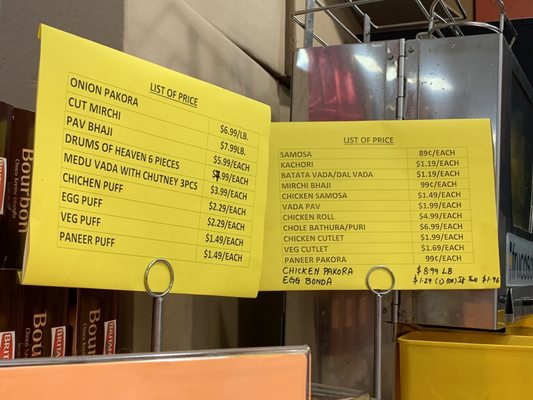 LIST OF PRICE
ONION PAKORA $6.99/LB.
CUT MIRCHI $7.99LB.
PAV BHAJI $5.99/EACH
DRUMS OF HEAVEN 6 PIECES $7.99/EACH
MEDU VADA WITH CHUTNEY 3PCS $3.99/EACH
CHICKEN PUFF $2.29/EACH
EGG PUFF $2.29/EACH
VEG PUFF $1.49/EACH
PANEER PUFF $1.49/EACH
LIST OF PRICE
SAMOSA 89¢/EACH
KACHORI $1.19/EACH
BATATA VADA/DAL VADA $1.19/EACH
MIRCHI BHAJI 99¢/EACH
CHICKEN SAMOSA $1.49/EACH
VADA PAV $1.99/EACH
CHICKEN ROLL $4.99/EACH
CHOLE BATHURA/PURI $6.99/EACH
CHICKEN CUTLET $1.99/EACH
VEG CUTLET $1.69/EACH
PANEER PAKORA 99¢/EACH
CHICKEN PAKORA $8.99 LB
EGG BONDA $1.29 (1) (OR) If Two $1.96
Bourbon
Bourbon
Bourbon